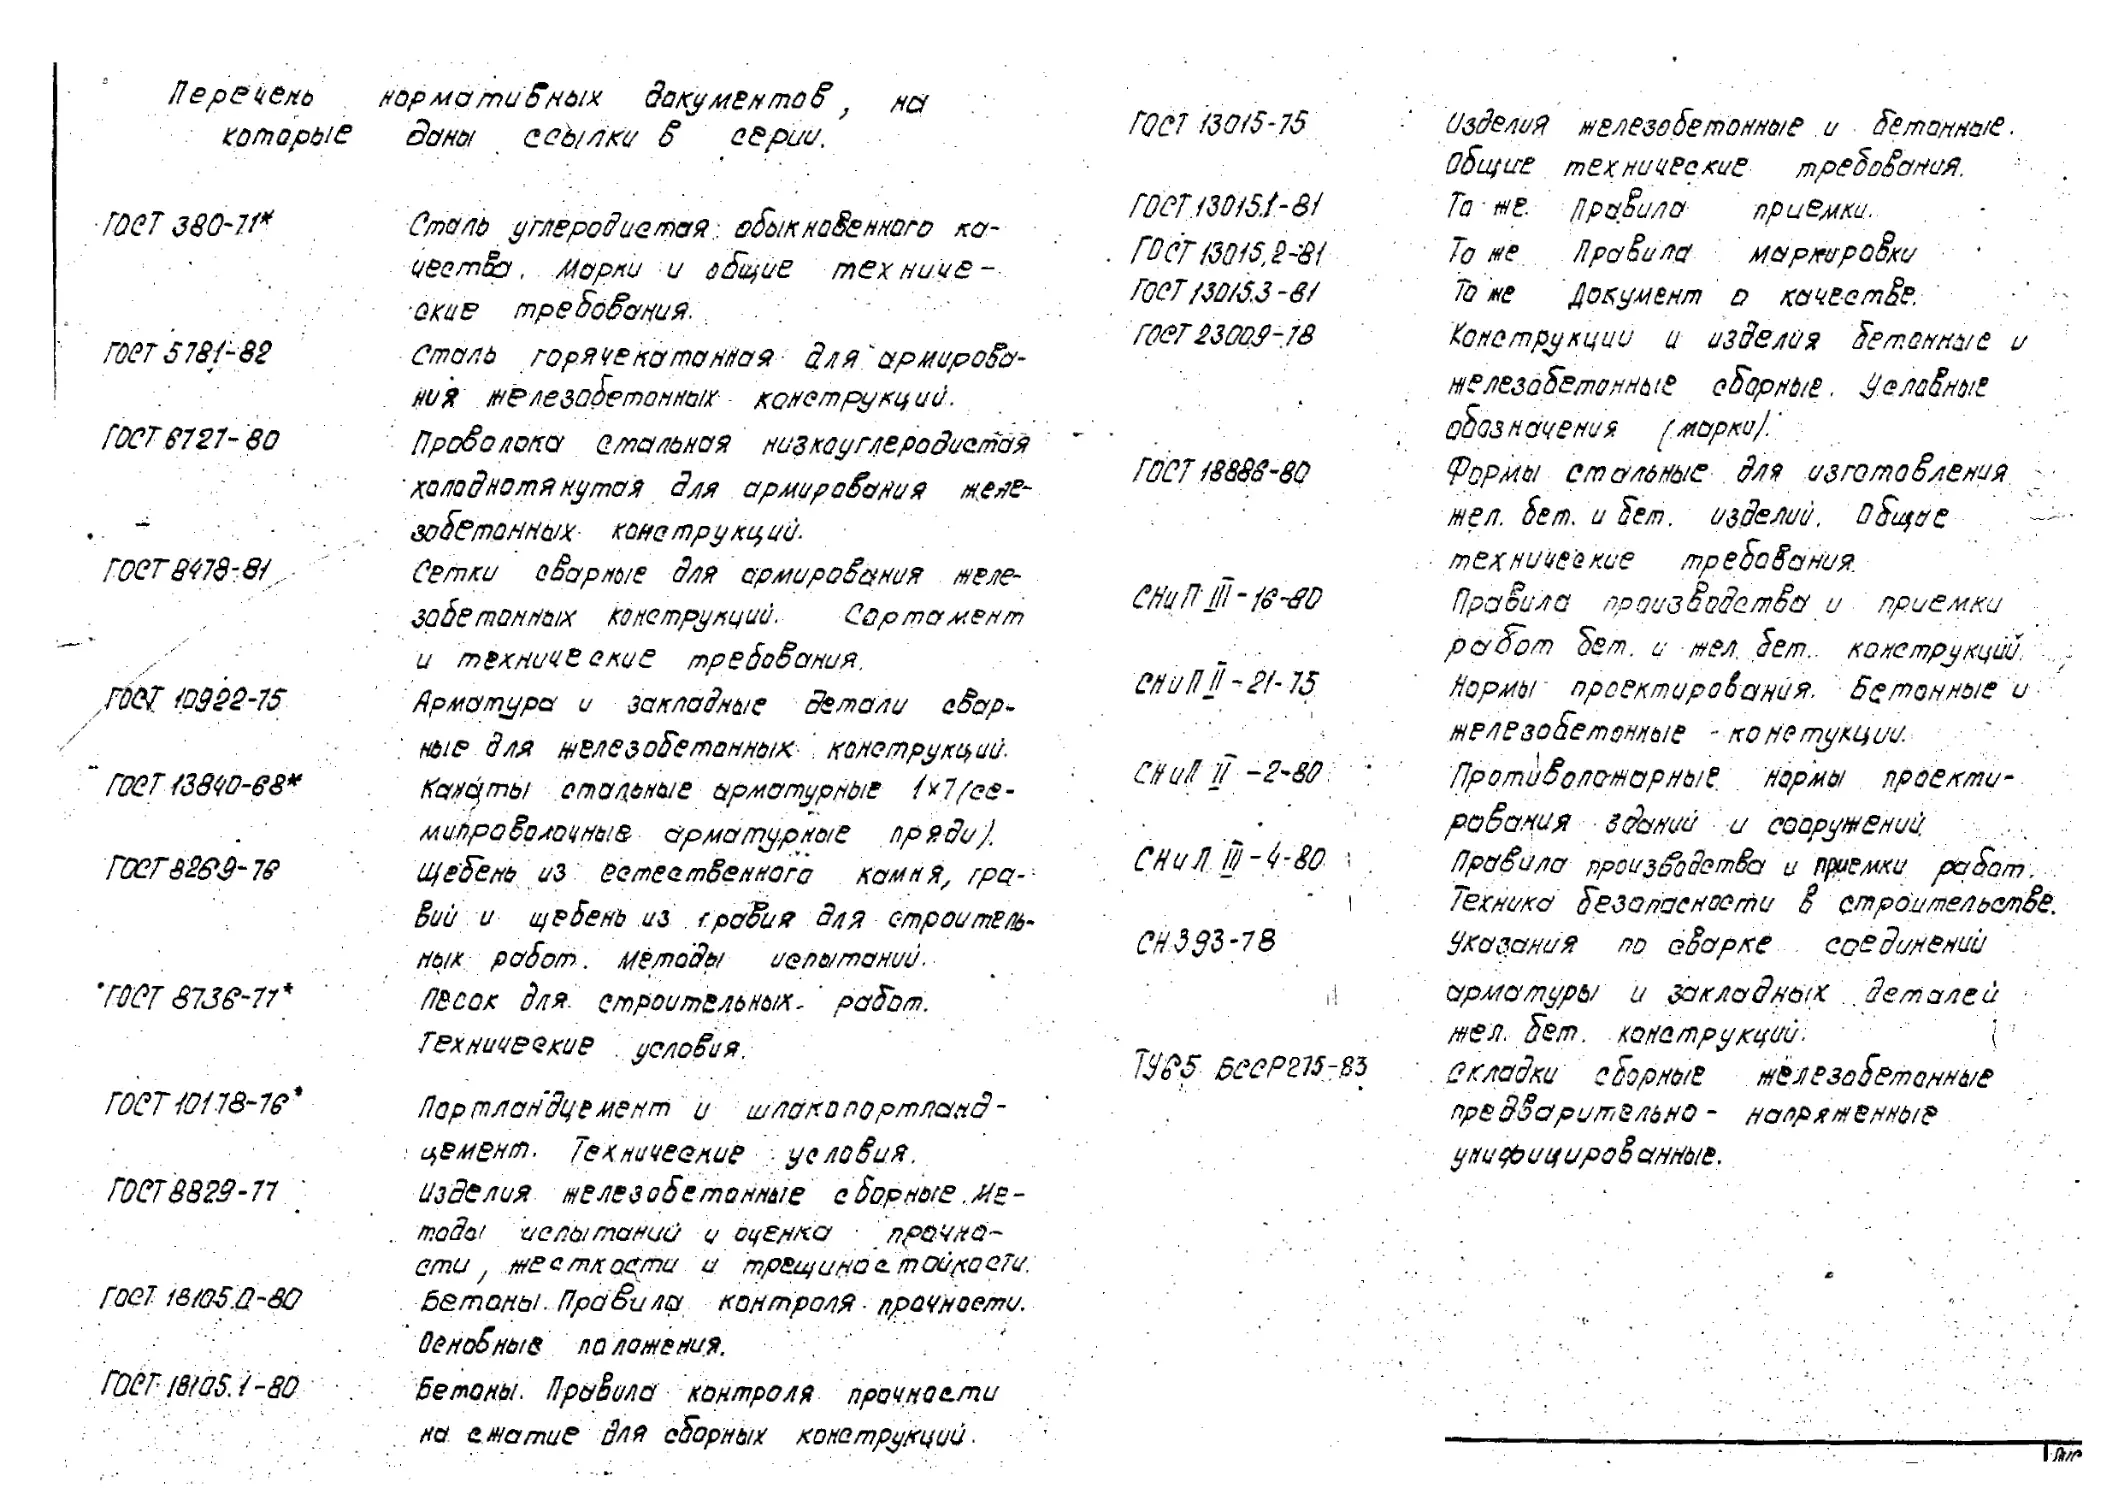 Перечень нормативных документов, на
которые даны ссылки в серии.
ГОСТ 380-71* Сталь углеродистая обыкновенного ка-
чества. Марки и общие техниче-
ские требования.
ГОСТ 5781-82 Сталь горячекатанная для армирова-
ния железобетонных конструкций.
ГОСТ 6727-80 Проволока стальная низкоуглеродистая
холоднотянутая для армирования желе-
зобетонных конструкций.
ГОСТ 8478-81 Сетки сварные для армирования желе-
зобетонных конструкций. Сортамент
и технические требования.
ГОСТ 10922-75 Арматура и закладные детали свар-
ные для железобетонных конструкций.
ГОСТ 13840-68* Канаты стальные арматурные 1×7 (се-
мипроволочные арматурные пряди).
ГОСТ 8269-76 Щебень из естественного камня, гра-
вий и щебень из гравия для строитель-
ных работ. Методы испытаний.
ГОСТ 8736-77* Песок для строительных работ.
Технические условия.
ГОСТ 10178-76* Портландцемент и шлакопортланд-
цемент. Технические условия.
ГОСТ 8829-77 Изделия железобетонные сборные. Ме-
тоды испытаний и оценка прочно-
сти, жесткости и трещиностойкости.
ГОСТ 18105.0-80 Бетоны. Правила контроля прочности.
Основные положения.
ГОСТ 18105.1-80 Бетоны. Правила контроля прочности
на сжатие для сборных конструкций.
ГОСТ 13015-75 Изделия железобетонные и бетонные.
Общие технические требования.
ГОСТ 13015.1-81 То же Правила приемки.
ГОСТ 13015.2-81 То же Правила маркировки
ГОСТ 13015.3-81 То же Документ о качестве.
ГОСТ 23009-78 Конструкции и изделия бетонные и
железобетонные сборные. Условные
обозначения (марки).
ГОСТ 18886-80 Формы стальные для изготовления
жел. бет. и бет. изделий. Общие
технические требования.
СНиП III-16-80 Правила производства и приемки
работ бет. и жел. бет. конструкций.
СНиП II-21-75 Нормы проектирования. Бетонные и
железобетонные - констукции.
СНиП II-2-80 Противопожарные нормы проекти-
рования зданий и сооружений.
СНиП III-4-80 Правила производства и приемки работ.
Техника безопасности в строительстве.
СН 393-78 Указания по сварке соединений
арматуры и закладных деталей
жел. бет. конструкций.
ТУ65 БССР275-83 Складки сборные железобетонные
предварительно - напряженные
унифицированные.